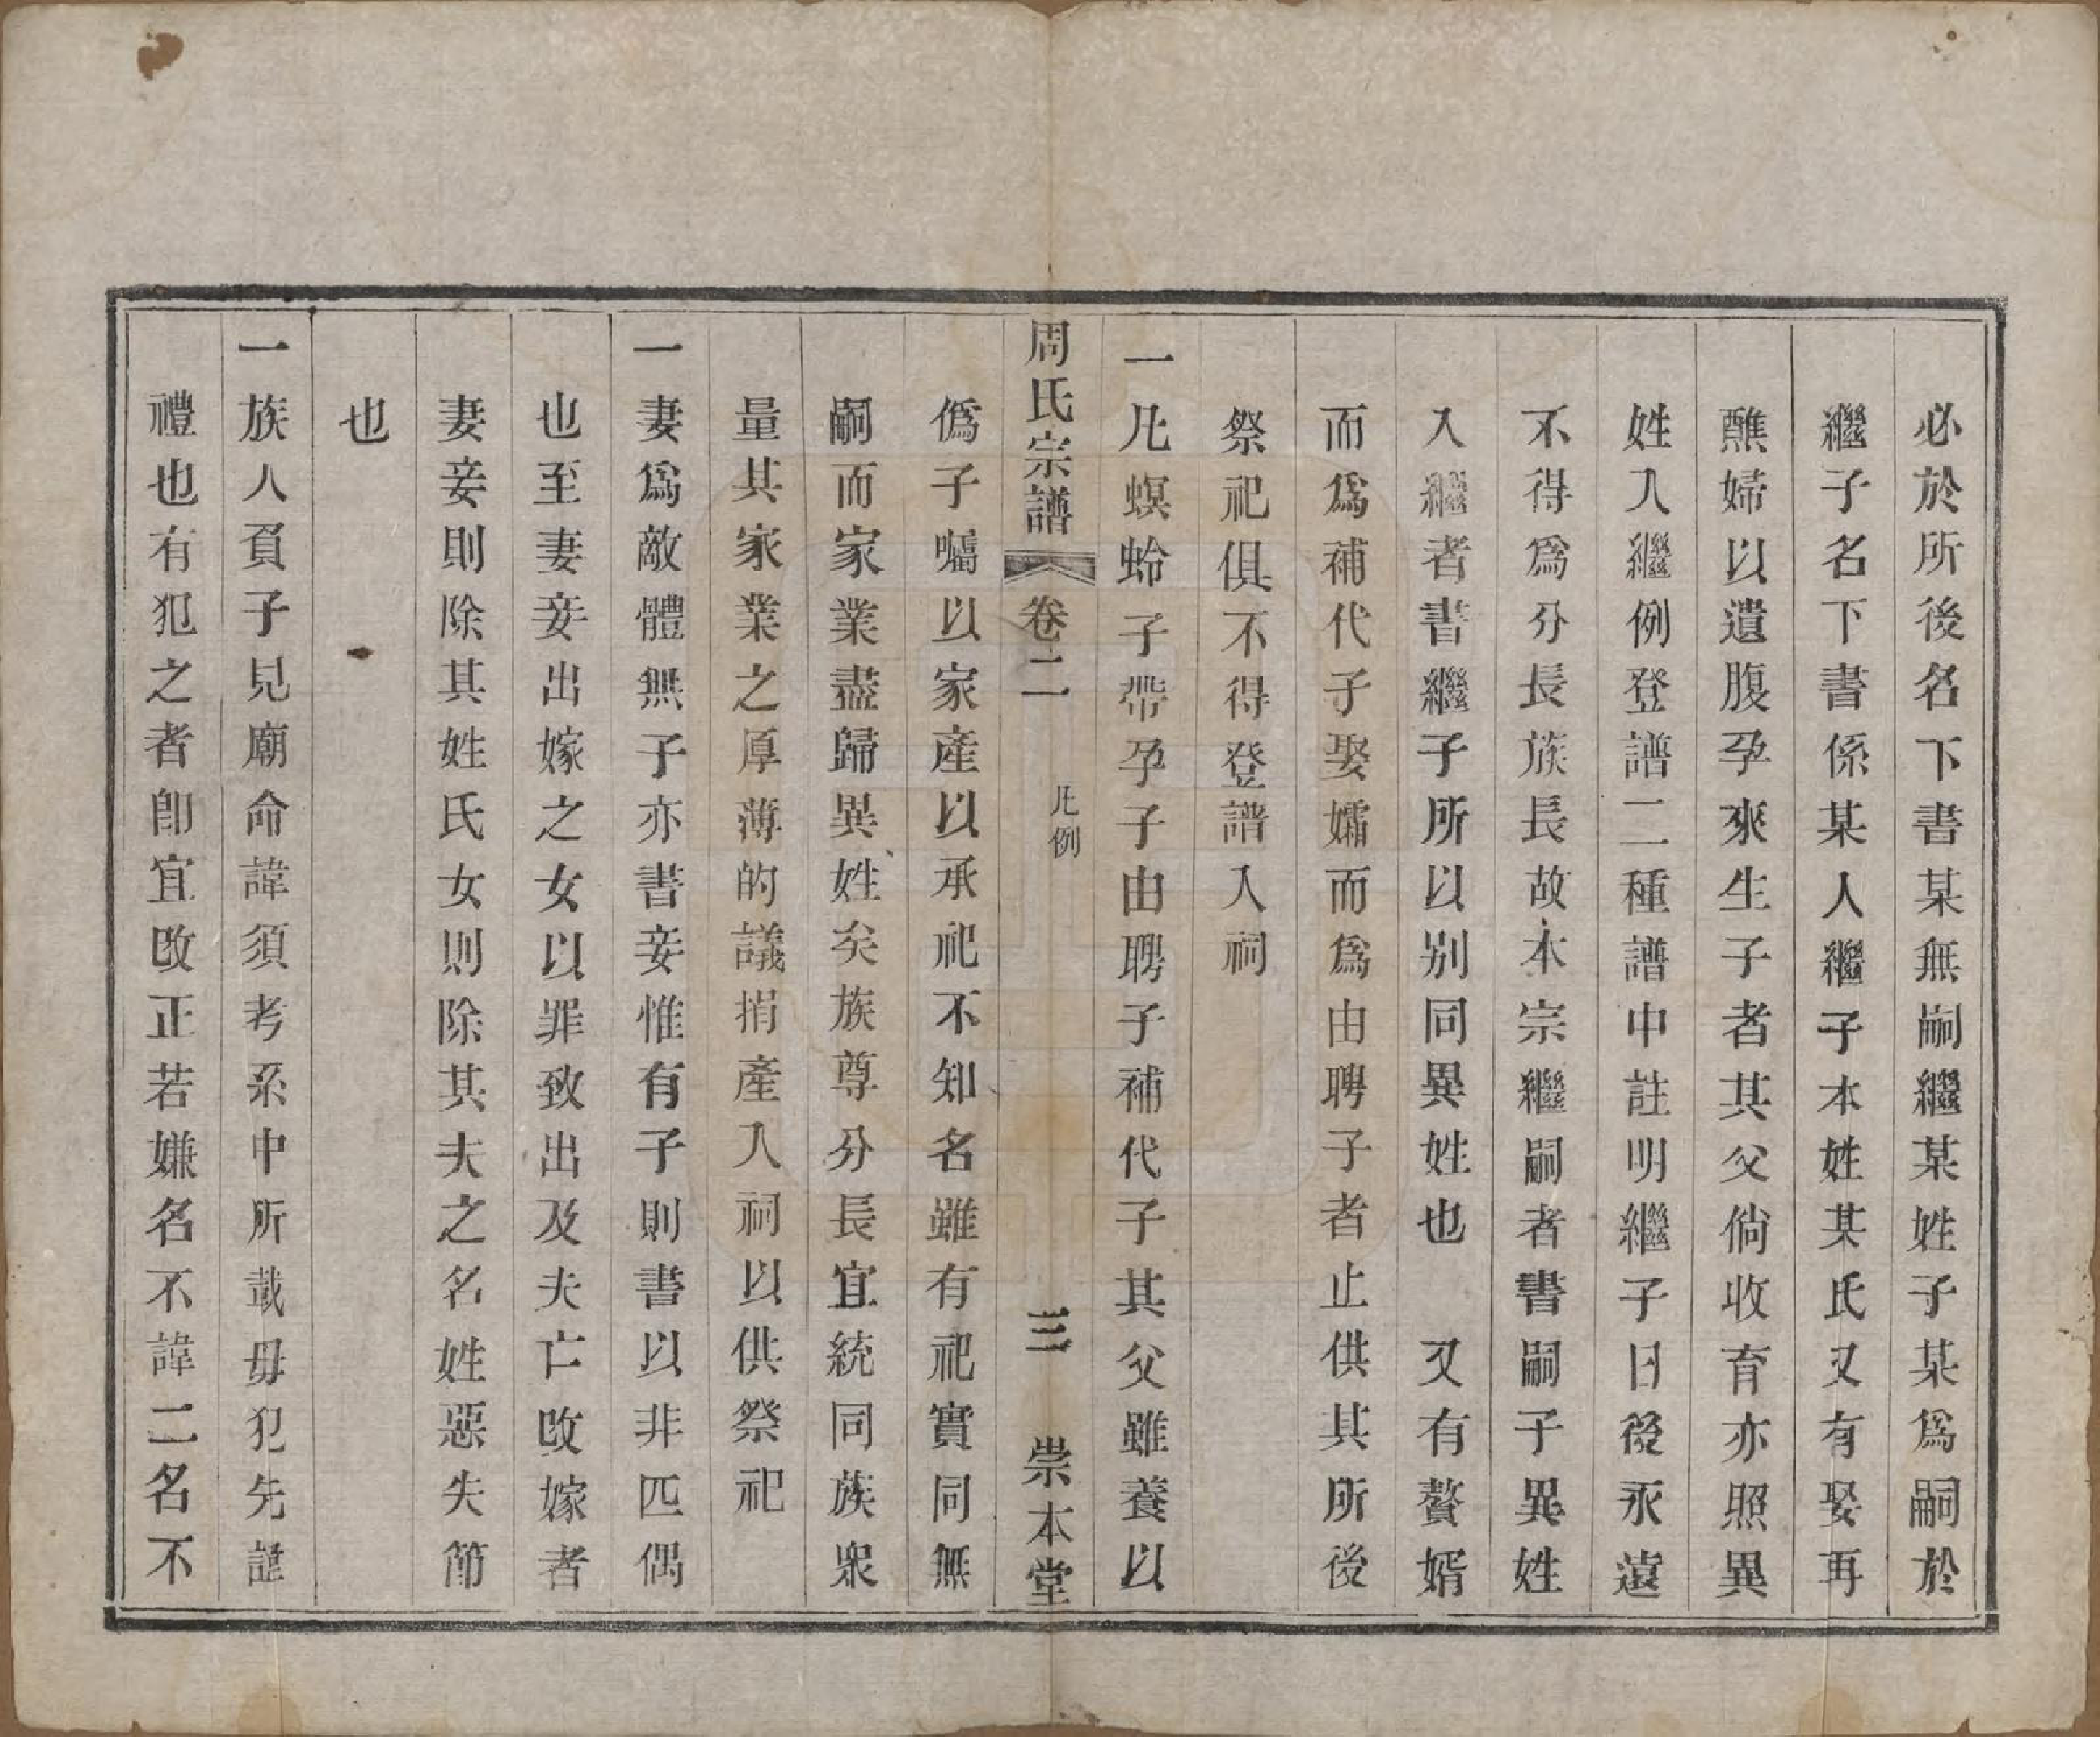 必於所後名下書某無嗣繼某姓子某爲嗣於
繼子名下書係某人繼子本姓某氏又有娶再
醮婦以遺腹孕來生子者其父倘收育亦照異
姓入繼例登譜二種譜中註明繼子日後永遠
不得爲分長族長故本宗繼嗣者書嗣子異姓
入繼者書繼子所以别同異姓也　又有贅婿
而爲補代子娶孀而爲由聘子者止供其所後
祭祀俱不得登譜入祠
一凡螟蛉子帶孕子由聘子補代子其父雖養以
周氏宗譜　卷二　凡例　三　崇本堂
僞子囑以家產以承祀不知名雖有祀實同無
嗣而家業盡歸異姓矣族尊分長宜統同族衆
量其家業之厚薄的議捐產入祠以供祭祀
一妻爲敵體無子亦書妾惟有子則書以非匹偶
也至妻妾出嫁之女以罪致出及夫亡改嫁者
妻妾則除其姓氏女則除其夫之名姓惡失節
也
一族人頁子見廟命諱須考系中所載毋犯先諱
禮也有犯之者卽宜改正若嫌名不諱二名不